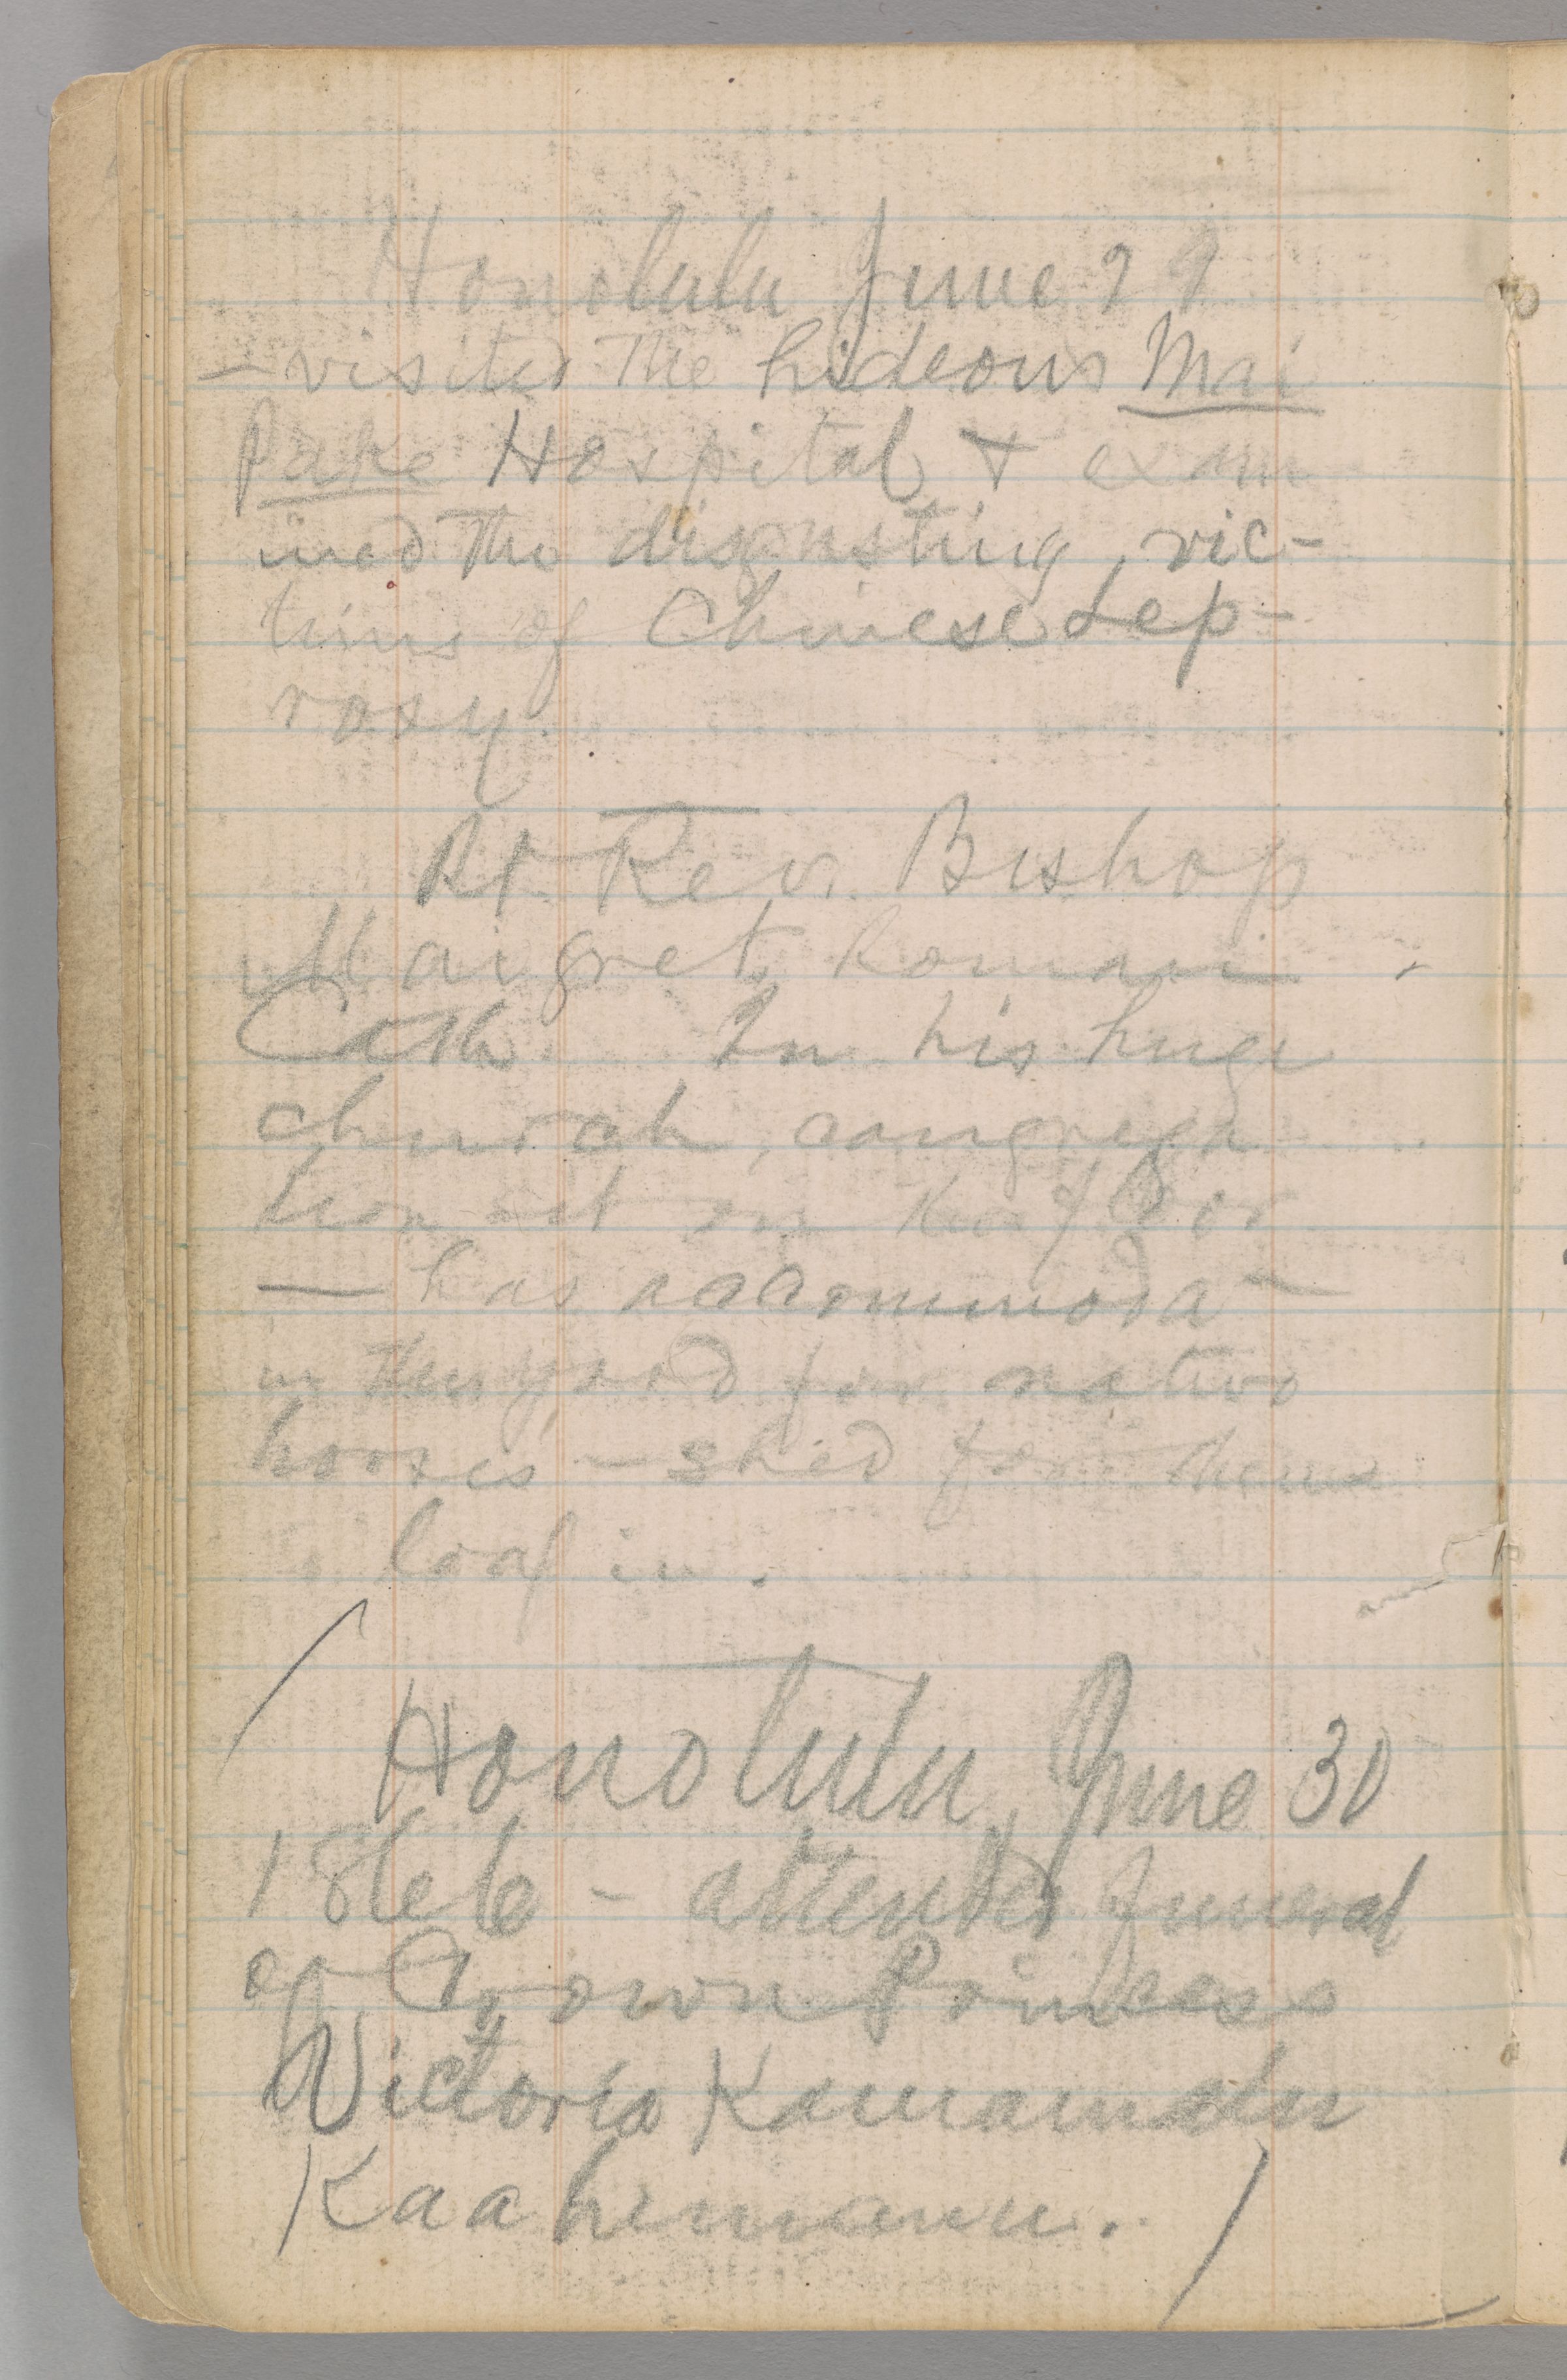 Honolulu June 29
— visited the hideous Mai
Pake Hospital & exam
ined the disgusting vic-
tims of Chinese Lep-
rosy.
Rt. Rev. Bishop
Maigret, Roman
Cath. In his huge
church, congrega
tion sit on the floor
— has accommoda—
in the yard for native
horses — shed for them
loaf in.
Honolulu, June 30
1866 – attended funeral
of Crown Princess
Victoria Kamamalu
Kaahumanu.